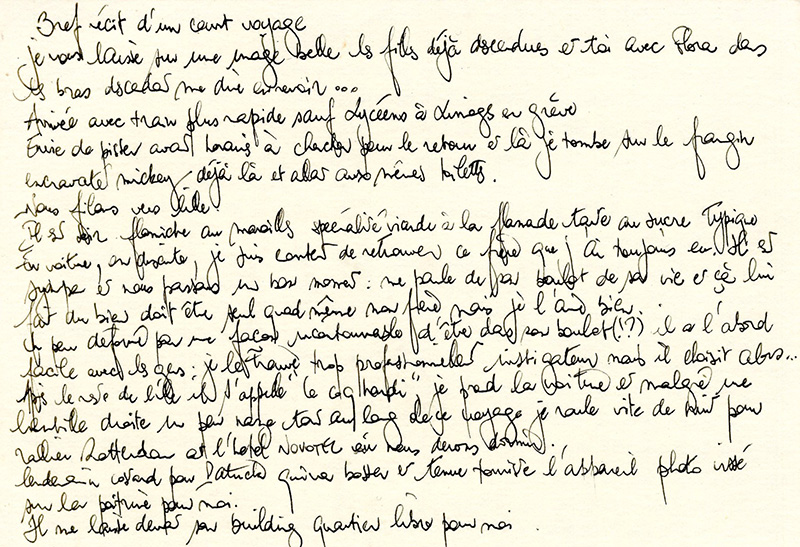 Bref récit d'un court voyage
je vous laisse sur une image belle les filles déjà descendues et toi avec Flora dans
les bras descendas me dire en revoir ...
Arrivée avec train plus rapide sauf Lycéens à Limoges en grève
Envie de pisser avant horaires à chercher pour le retour et là je tombe sur le frangin
encravaté mickey déjà là et allant aux mêmes toilettes.
Nous filons vers Lille.
Il est flamiche au maroilles spécialité viande à la flamande tarte au sucre Typique
En voiture, on discute, je suis content de retrouver ce frère que j'ai toujours eu. Il est
sympa et nous passons un bon moment : me parle de son boulot de sa vie et ça lui
fait du bien doit être seul quand même mon frère mais je l'aime bien.
Un peu déformé par une façon incontournable d'être dans son boulot (!?) il a l'abord
facile avec les gens : je le trouve trop professionnellement instigateur mais il choisit alors...
le resto de Lille il s'appelle "le coq hardi", je prend la voiture et malgré une
droite un peu tout au long de ce voyage je roule vite de nuit pour
rallier Rotterdam et l'hotel NOVOTEL où nous devons dormir.
lendemain costard pour Patrick qui va bosser et tenue touriste l'appareil photo vissé
sur la poitrine pour moi.
Il me laisse devant son building quartier libre pour moi.